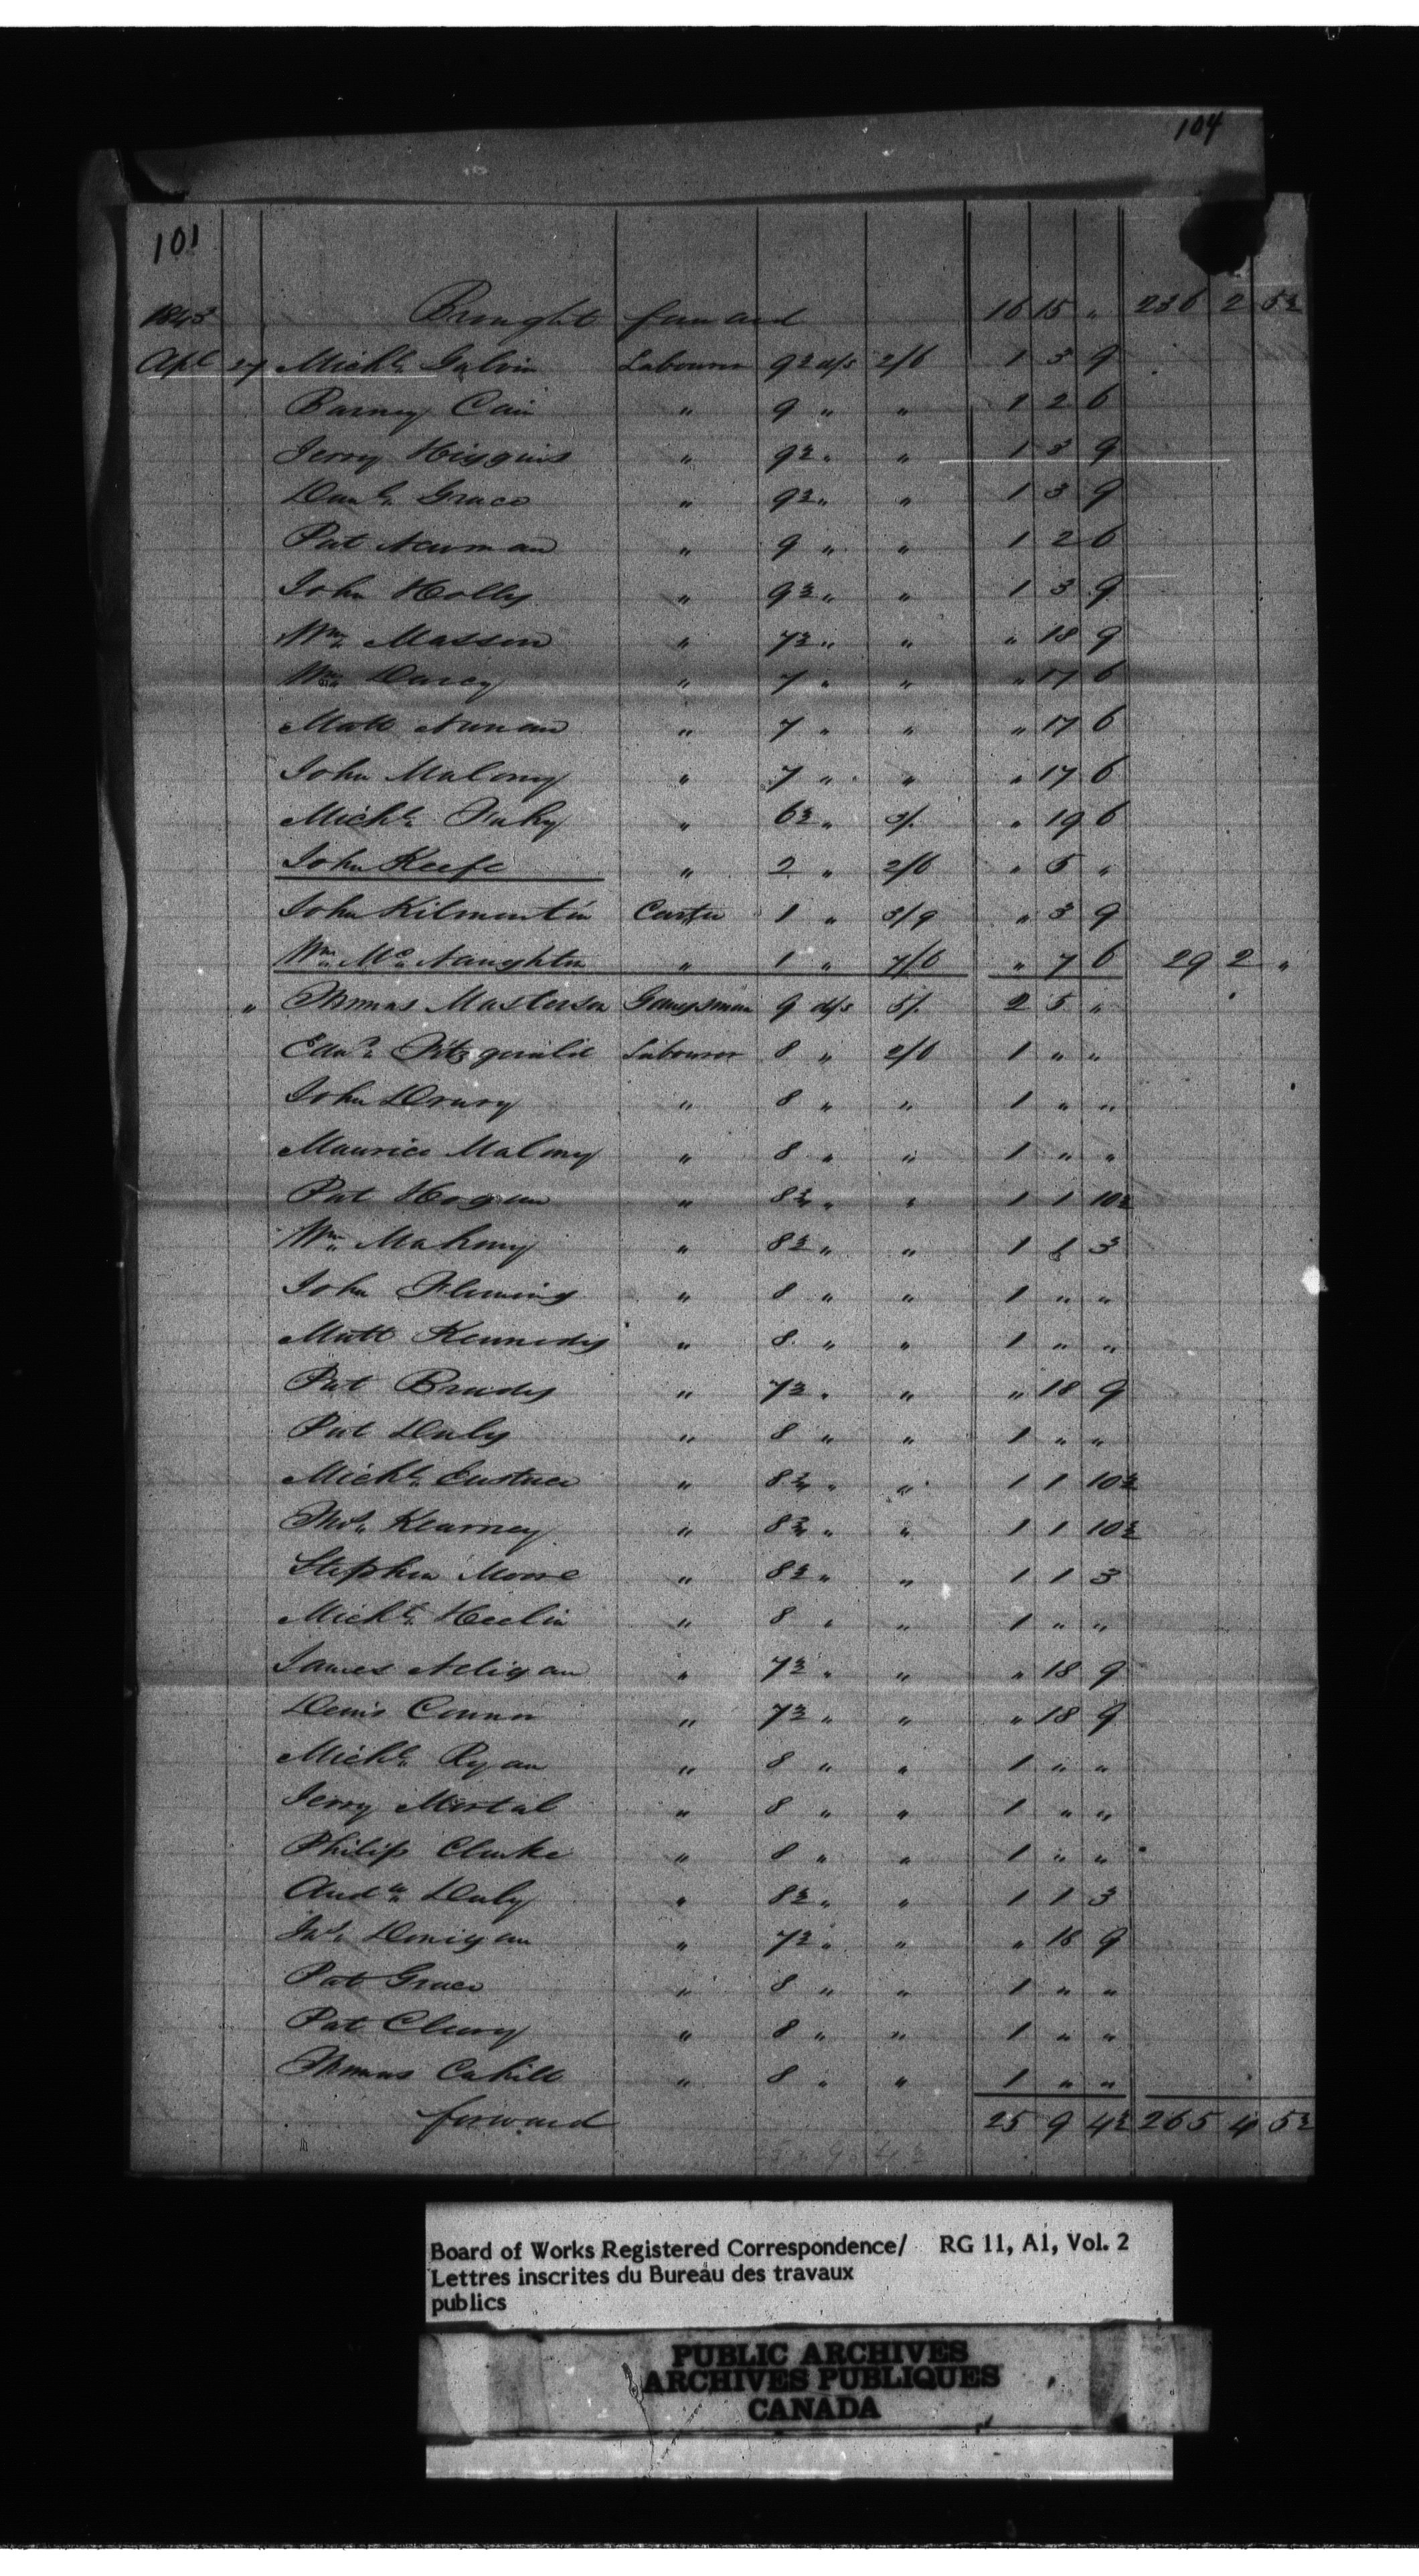 104
101
1843 Brought forward 16 15 " 236 2 5½
Apl 27 Michl. Galvin Labourer 9½ d/s 2/6 1 3 9
Barney Cain " 9 " " 1 2 6
Jerry Higgins " 9½ " " 1 3 9
Danl. Grace " 9½ " " 1 3 9
Pat Newman " 9 " " 1 2 6
John Holly " 9½ " " 1 3 9
Wm. Masson " 7½ " " " 18 9
Wm. Darcy " 7 " " " 17 6
Matt Nunan " 7 " " " 17 6
John Malony " 7 " " " 17 6
Michl. Fahy " 6½ " 3/. " 19 6
John Keefe " 2 " 2/6 " 5 "
John Kilmontin Carter 1 " 3/9 " 3 9
Wm. Mc.Naughtn " 1 " 7/6 " 7 6 29 2 "
" Thomas Masterson Gangsman 9 d/s 5/. 2 5 "
Edwd. Fitzgerald Labourer 8 " 2/6 1 " "
John Drury " 8 " " 1 " "
Maurice Malony " 8 " " 1 " "
Pat Hogan " 8¾ " " 1 1 10½
Wm. Mahony " 8½ " " 1 1 3
John Fleming " 8 " " 1 " "
Matt Kennedy " 8 " " 1 " "
Pat Brady " 7½ " " " 18 9
Pat Daly " 8 " " 1 " "
Michl. Eustace " 8¾ " " 1 1 10½
Thos. Kearney " 8¾ " " 1 1 10½
Stephen Moore " 8½ " " 1 1 3
Michl. Heelin " 8 " " 1 " "
James Neligan " 7½ " " " 18 9
Denis Connor " 7½ " " " 18 9
Michl. Ryan " 8 " " 1 " "
Jerry Mortal " 8 " " 1 " "
Philip Clarke " 8 " " 1 " "
Andw. Daly " 8½ " " 1 1 3
Jas. Donigan " 7½ " " " 18 9
Pat Grace " 8 " " 1 " "
Pat Cleary " 8 " " 1 " "
Thomas Cahill " 8 " " 1 " "
forward 25 9 4½ 265 4 5½
25 " 9 " 4½
Board of Works Registered Correspondence/ RG 11, A1, Vol. 2
Lettres inscrites du Bureau des travaux
publics
PUBLIC ARCHIVES
ARCHIVES PUBLIQUES
CANADA